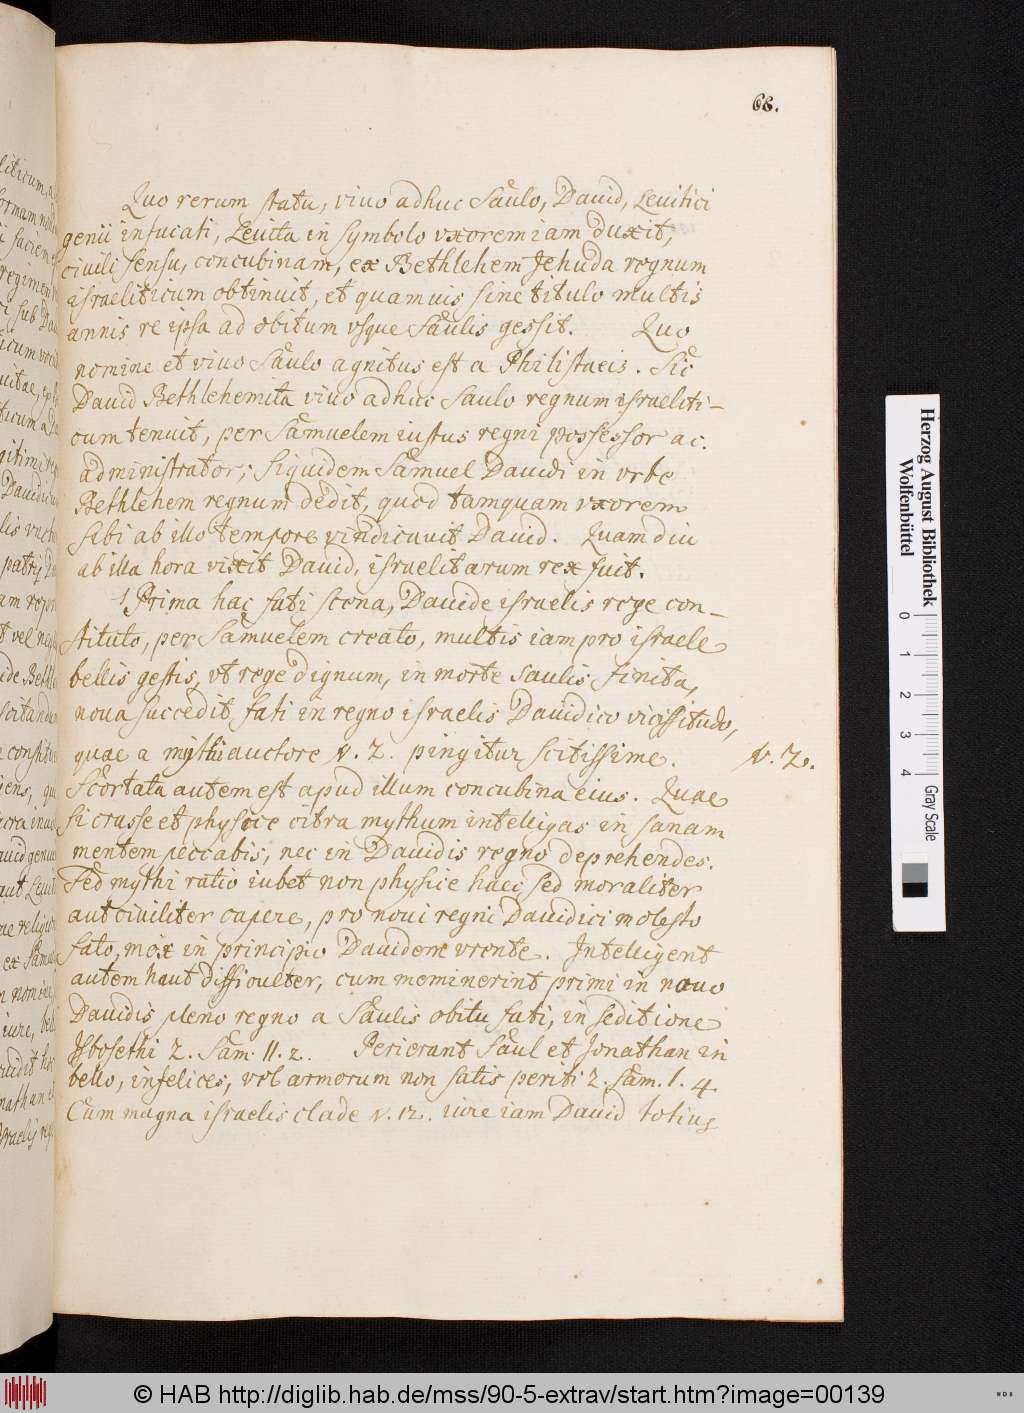 66.
Quo rerum statu, viuo adhuc Saulo, Dauid, Leuitici
genii infucati, Leuita in symbolo vxorem iam duxit,
ciuili sensu, concubinam, ex Bethlehem Jehuda regnum
israeliticum obtinuit, et quamuis sine titulo multis
annis re ipsa ad obitum vsque Saulis gessit. Quo
nomine et viuo Saulo agnitus est a Philistaeis. Sic
Dauid Bethlehemita viuo adhuc Saulo regnum israeliti-
cum tenuit, per Samuelem iustus regni possessor ac
administrator; siquidem Samuel Dauidi in vrbe
Bethlehem regnum dedit, quod tamquam vxorem
sibi ab illo tempore vindicauit Dauid. Quamdiu
ab illa hora vixit Dauid, israelitarum rex fuit.
Prima hac fati scena, Dauide israelis rege con-
stituto, per Samuelem creato, multis iam pro israele
bellis gestis, vt rege dignum, in morte Saulis finita,
noua succedit fati in regno israelis Dauidico vicissitudo,
quae a mythi auctore v. 2. pingitur scitissime.
v. 2.
Scortata autem est apud illum concubina eius. Quae
si crasse et physice citra mythum intelligas in sanam
mentem peccabis, nec in Dauidis regno deprehendes.
Sed mythi ratio iubet non physice haec sed moraliter
aut ciuiliter capere, pro noui regni Dauidici molesto
fato, mox in principio Dauidem vrente. Intelligent
autem haut difficulter, cum meminerint primi in nouo
Dauidis pleno regno a Saulis obitu fati, in seditione
Isbosethi 2. Sam. II. 2. Perierant Saul et Jonathan in
bello, infelices, vel armorum non satis periti 2. Sam. 1. 4.
Cum magna israelis clade v. 12. iure iam Dauid totius
Herzog August Bibliothek
Wolfenbüttel
0 1 2 3 4
Gray Scale
© HAB http://diglib.hab.de/mss/90-5-extrav/start.htm?image=00139